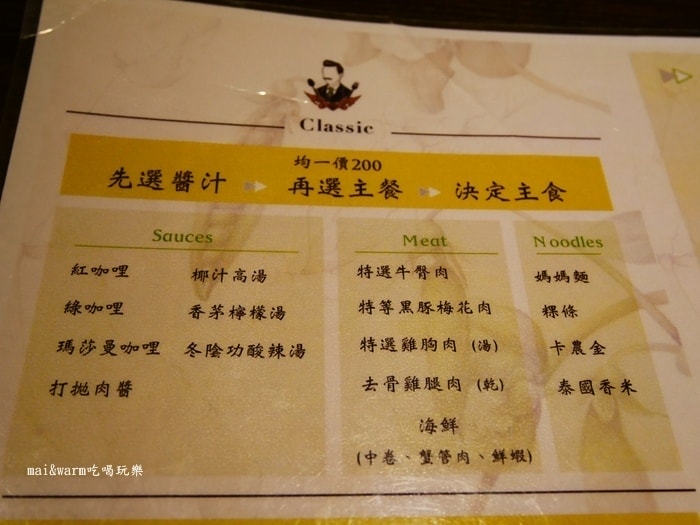 Classic
均一價200
先選醬汁 再選主餐 決定主食
Sauces
紅咖哩 椰汁高湯
綠咖哩 香茅檸檬湯
瑪莎曼咖哩 冬陰功酸辣湯
打拋肉醬
Meat
特選牛臀肉
特等黑豚梅花肉
特選雞胸肉 (湯)
去骨雞腿肉 (乾)
海鮮
(中卷、蟹管肉、鮮蝦)
Noodles
媽媽麵
粿條
卡農金
泰國香米
mai&warm吃喝玩樂